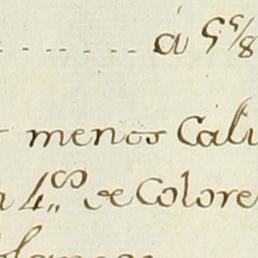 á 5 5/8
menos Calu
4,,os de Colore